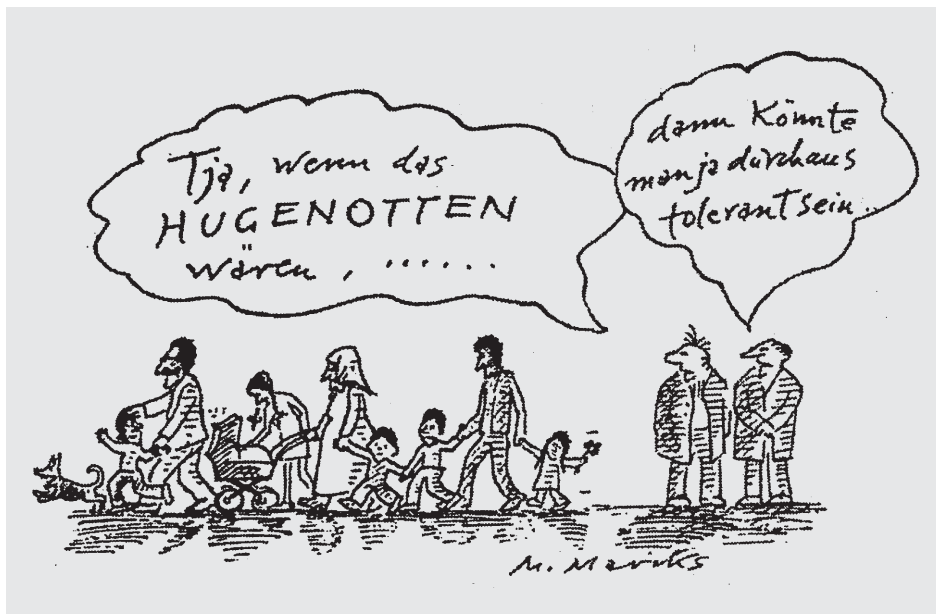 Tja, wenn das
HUGENOTTEN
wären, ......
dann könnte
man ja durchaus
tolerant sein..
M. Marcks